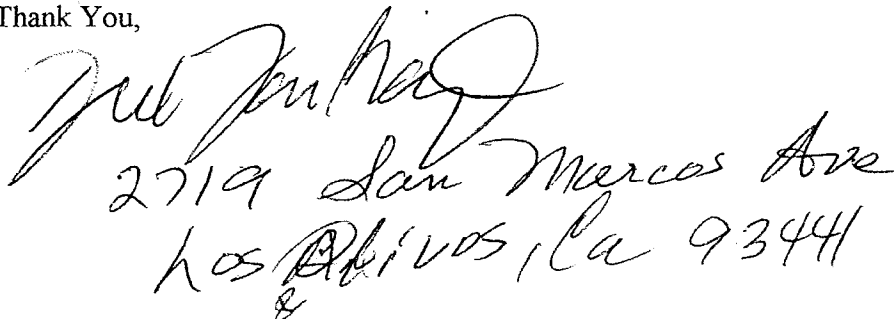 Thank You,
2719 San Marcos Ave
Los Olivos, Ca 93441